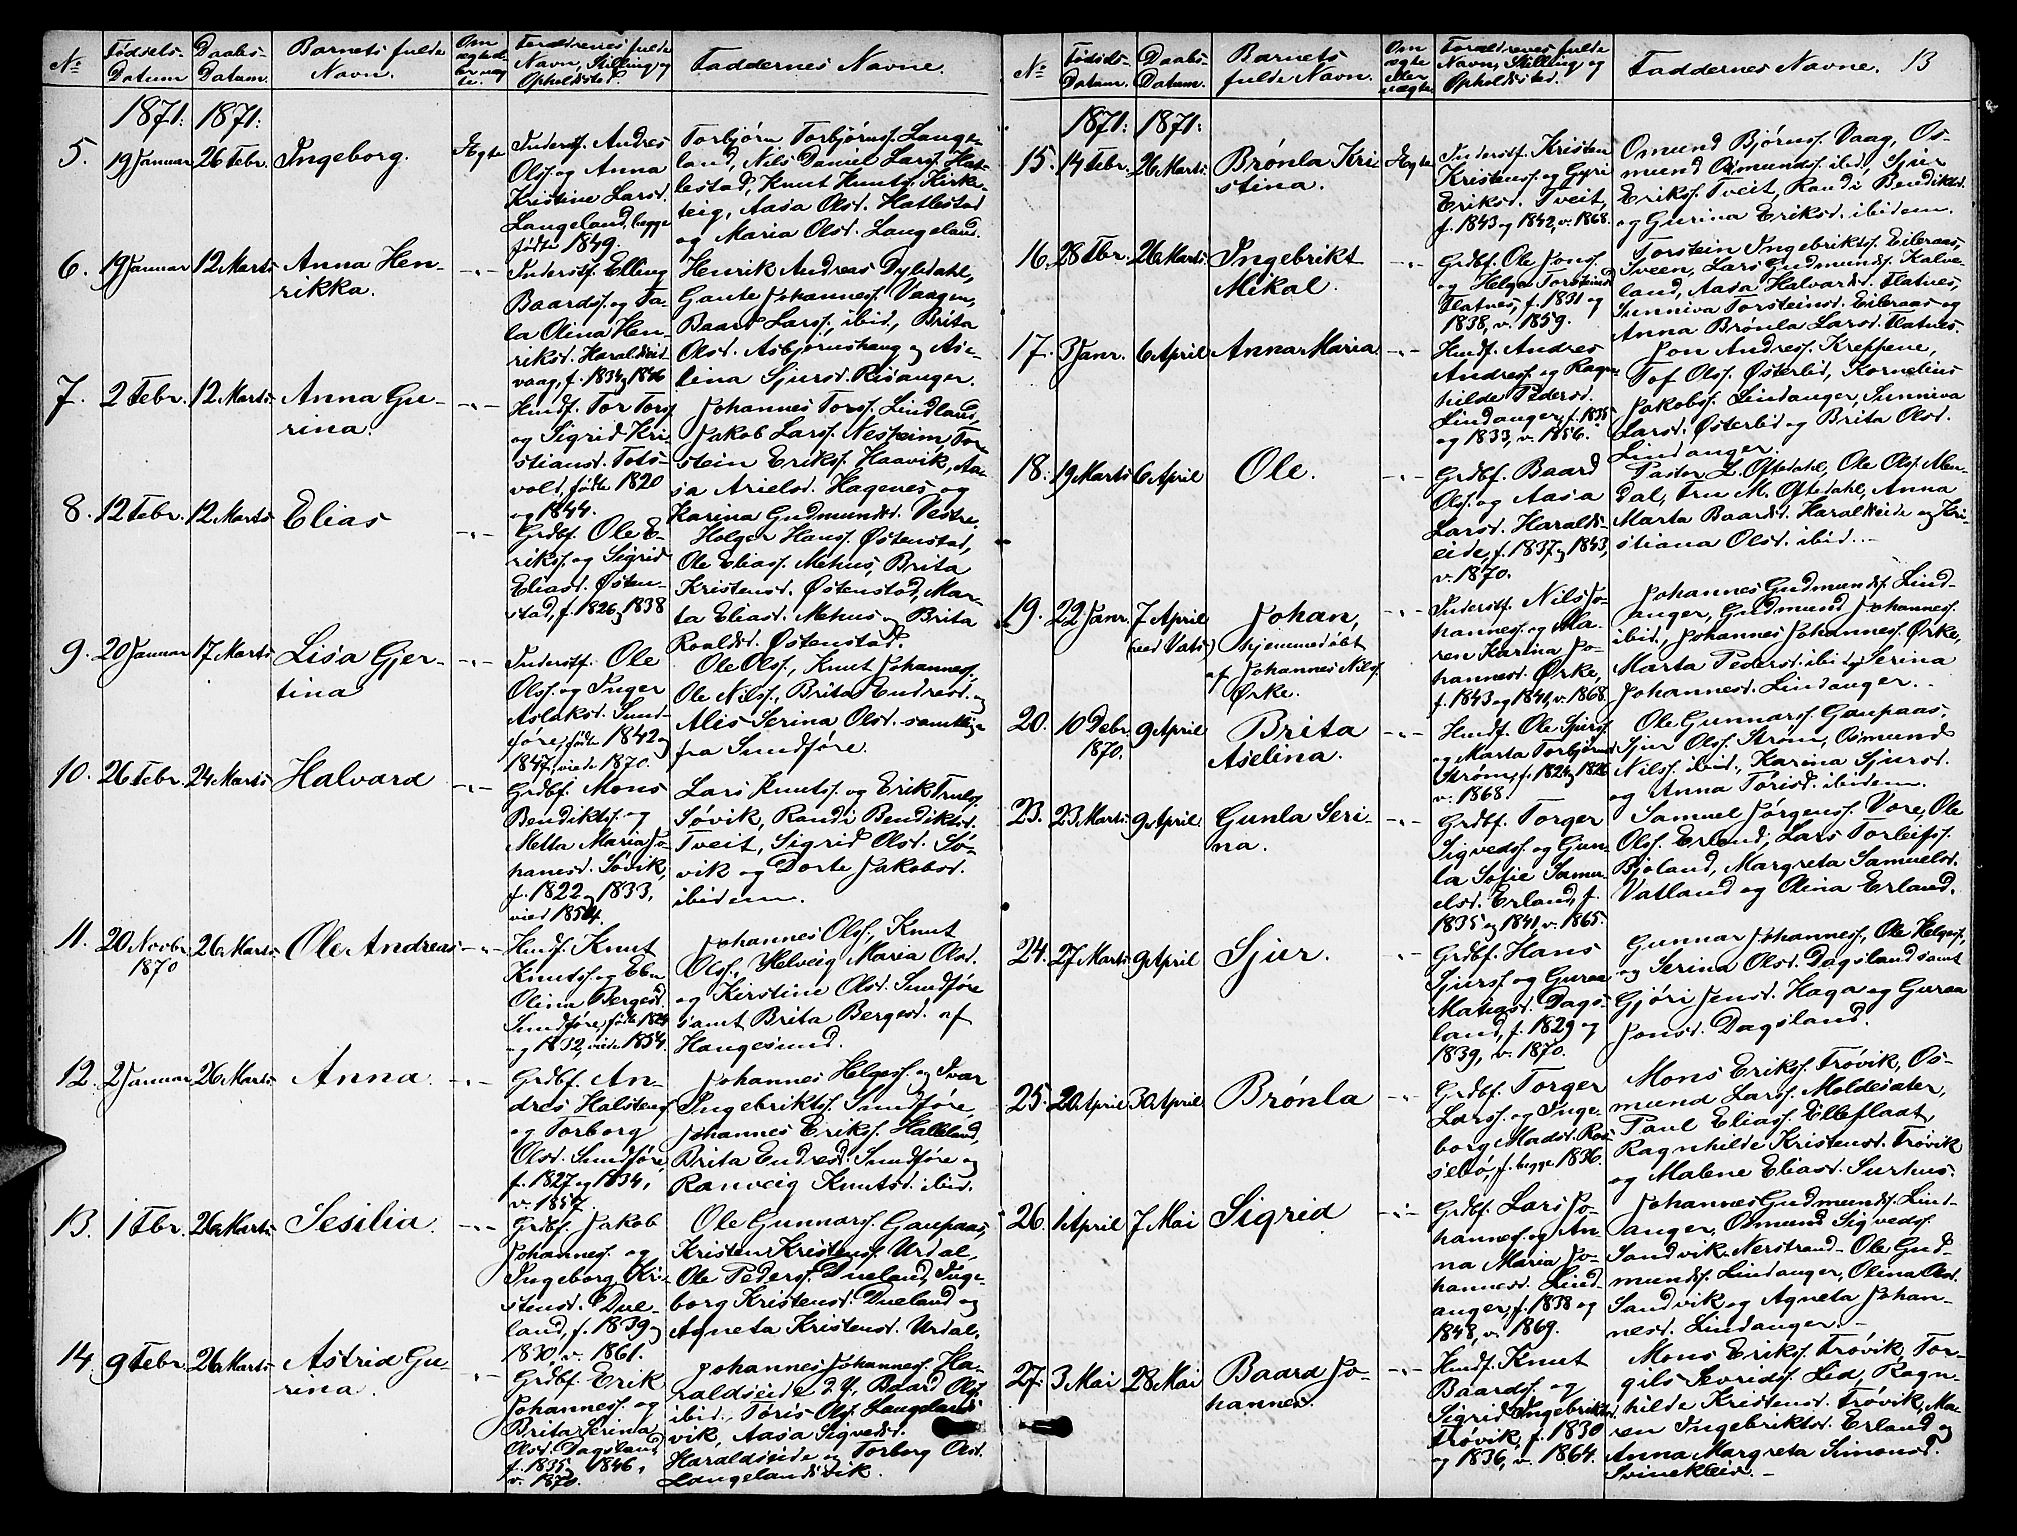 No
Fødsels-
Datum
Daabs-
Datum.
Barnets fulde
Navn.
Om
ægte
eller uæg-
te.
Forældrenes fulde
Navn, Stilling og
Opholdsted.
Faddernes Navne.
1871: 1871:
5. 19 Januar 26 Febr. Ingeborg. Ægte
Inderstf. Andres
Ols. og Anna
Kristine Larsd.
Langeland, begge
fødte 1849.
Torbjørn Torbjørns. Lange-
land, Nils Daniel Lars. Hat-
lestad, Knut Knuts. Kirke-
teig, Aasa Olsd. Hatlestad
og Maria Olsd. Langeland.
6. 19 Januar 12 Marts Anna Hen-
rikka. -"-
Inderstf. Elling
Baards. og Ta-
la Olina Hen-
riksd. Haraldseid
vaag, f. 1834 og 1846
Henrik Andreas Dyledahl,
Gaute Johannes. Vaagen,
Baard Lars., ibid., Brita
Olsd. Asbjørnshaug og Ase-
lina Sjursd. Risanger.
7. 2 Febr. 12 Marts Anna Gu-
rina. -"-
Husf. Tor Tors.
og Sigrid Kri-
stiansd. Tots-
vold, fødte 1820
og 1844.
Johannes Tors. Lindland,
Jakob Lars. Nesheim, Tor-
stein Eriks. Haavik, Aa-
sa Arielsd. Hagenes og
Karina Gudmundsd. Vestre.
8. 12 Febr. 12 Marts Elias -"-
Grdbf. Ole E-
riks. og Sigrid
Eliasd. Østen-
stad, f. 1826 og 1838
Holger Hans. Østenstad,
Ole Elias. Mehus, Brita
Kristensd. Østenstad, Mar-
ta Eliasd. Mehus og Brita
Roaldsd. Østenstad.
9. 20 Januar 17 Marts Lisa Gjer-
tina -"-
Inderstf. Ole
Ols. og Inger
Aslaksd. Sund-
føre, fødte 1842 og
1847, viede 1870.
Ole Ols., Knut Johannes.,
Ole Nils., Brita Endresd. og
Alis Serina Olsd. samtlige
fra Sundføre.
10. 26 Febr. 24 Marts Halvard -"-
Grdbf. Mons
Bendikts. og
Metta Maria Jo-
hanesd. Søvik,
f. 1822 og 1833,
vied 1854.
Lars Knuts. og Erik Truls.
Søvik, Randi Bendiktsd.
Tveit, Sigrid Olsd. Sø-
vik og Dorte Jakobsd.
ibidem.
11. 20 Novbr. 26 Marts Ole Andreas -"-
1870
Husf. Knut
Knuts. og
Olina Bergesd.
Sundføre, fødte 1824
og 1832, viede 1854.
Johannes Ols., Knut
Ols., Helveig Maria Olsd.
og Kirstine Olsd. Sundføre
samt Brita Bergesd. af
Haugesund.
12. 2 Januar 26 Marts Anna. -"-
Grdbf. An-
dres Halstens.
og Torborg
Olsd. Sundføre
f. 1827 og 1834,
v. 1857
Johannes Helges. og Ivar
Ingebrikts. Sundføre,
Johannes Eriks. Halleland,
Brita Endresd. Sundføre og
Ranveig Knutsd. ibid.
13. 1 Fbr. 26 Marts Sesilia. -"-
Grdbf. Jakob
Johannes. og
Ingeborg Kri-
stensd. Due-
land, f. 1839 og
1830 v. 1861.
Ole Gunnars. Gaupaas,
Kristen Kristens. Urdal,
Ole Peders. Dueland, Inge-
borg Kristensd. Dueland og
Agneta Kristensd. Urdal.
14. 9 Febr. 26 Marts Astrid Gu-
rina. -"-
Grdbf. Erik
Johannes. og
Brita Serina
Olsd. Dagsland,
f. 1835 og 1846,
v. 1870.
Johannes Johannes. Ha-
raldseide d.Y., Baard Ols.
ibid., Tøris Ols. Langelands-
vik, Aasa Sigvedsd.
Haraldseide og Torborg Olsd.
Langelandsvik.
No
Fødsels-
Datum.
Daabs-
Datum.
Barnets
fulde Navn.
Om
ægte
eller
uægte
Forældrenes fulde
Navn, Stilling og
Opholdsted.
Faddernes Navne. 13
1871: 1871:
15. 14 Febr. 26 Marts Brønla Kri-
stina. Ægte
Inderstf. Kristen
Kristens. og Gyri
Eriksd. Tveit,
f. 1843 og 1842, v. 1868.
Omund Bjørns. Vaag, Os-
mund Osmunds. ibid, Sjur
Eriks. Tveit, Randi Bendiktsd.
og Gurina Eriksd. ibidem.
16. 28 Fbr. 26 Marts Ingebrikt
Mikal. -"-
Grdbf. Ole Jons.
og Helga Torsteinsd
Flatnes, f. 1831 og
1838, v. 1859.
Torstein Ingebrikts. Eileraas,
Sveen, Lars Gudmunds. Kalve-
land, Aasa Halvarsd. Flatnes,
Sunniva Torsteinsd. Eileraas og
Anna Brønla Larsd. Flatnes.
17. 3 Janr. 6 April Anna Maria. -"-
Husf. Andres
Andres. og Ragn-
hilde Pedersd.
Lindanger, f. 1835
og 1833, v. 1856.
Jon Andres. Kreppene,
Tof Ols. Østerlid, Kornelius
Jakobs. Lindanger, Sunniva
Larsd. Østerlid og Brita Olsd.
Lindanger.
18. 19 Marts 6 April Ole. -"-
Grdbf. Baard
Ols. og Aasa
Larsd. Haralds-
eide, f. 1837 og 1843,
v. 1870.
Pastor L. Oftedahl, Ole Ols. Alen-
dal, Fru M. Oftedahl, Anna
Marta Baardsd. Haraldseide og Kri-
stiana Olsd. ibid.
19. 22 Janr. 7 April Johan, -"-
(ved Vats) hjemmedøbt
af Johannes Nils.
Ørke.
Inderstf. Nils Jo-
hannes. og Ma-
ren Karina Jo-
hannesd. Ørke,
f. 1843 og 1841, v. 1868.
Johannes Gudmunds. Lind-
anger, Gudmund Johannes.
ibid., Johannes Johannes. Ørke,
Marta Pedersd. ibid og Serina
Johannesd. Lindanger.
20. 10 Debr. 9 April Brita
1870. Aselina. -"-
Husf. Ole Sjurs.
og Marta Torbjørnsd
Strøm, f. 1824 og 1826
v. 1868
Ole Gunnars. Gaupaas,
Sjur Ols. Strøm, Osmund
Nils. ibid., Karina Sjursd.
og Anna Tørisd. ibidem.
23. 23 Marts 9 April. Gunla Seri-
na. -"-
Grdbf. Torger
Sigveds. og Gun-
la Sofie Samu-
elsd. Erland, f.
1835 og 1841, v. 1865.
Samuel Jørgens. Vore, Ole
Ols. Erland, Lars Torleifs.
Bjoland, Margreta Samuelsd.
Vatland og Olina Erland.
24. 27 Marts 9 April Sjur. -"-
Grdbf. Hans
Sjurs. og Guroa
Matiasd. Dags-
land, f. 1829 og
1839, v. 1870.
Gunnar Johannes., Ole Helges.,
og Serina Olsd. Dagsland samt
Gjøri Jensd. Haga og Guroa
Jonsd. Dagsland.
25. 20 April 30 April Brønla -"-
Grdbf. Torger
Lars. og Inge-
borg Madsd. Ros-
sebø, f. begge 1836.
Mons Eriks. Trøvik, Os-
mund Lars. Moldesater,
Paul Elias. Elleflaadt,
Ragnhilde Kristensd. Trøvik
og Malene Eliasd. Surhus.
26. 1 April 7 Mai Sigrid -"-
Grdbf. Lars Jo-
hannes. og An-
na Maria Jo-
hannesd. Lind-
anger, f. 1838 og
1848, v. 1869.
Johannes Gudmunds. Lind-
anger, Osmund Sigveds.
Sandvik Nerstrand, Ole Gud-
munds. Lindanger, Olina Olsd.
Sandvik og Agneta Johan-
nesd. Lindanger.
27. 3 Mai 28 Mai Baard Jo-
hannes. -"-
Husf. Knut
Baards. og
Sigrid Ingebriktsd
Trøvik, f. 1830
og 1836, v. 1864.
Mons Eriks. Trøvik, Tor-
gils Sivrids. Lid, Ragn-
hilde Kristensd. Trøvik, Ma-
ren Ingebriktsd. Erland og
Anna Margreta Simonsd.
Svinekleiv.